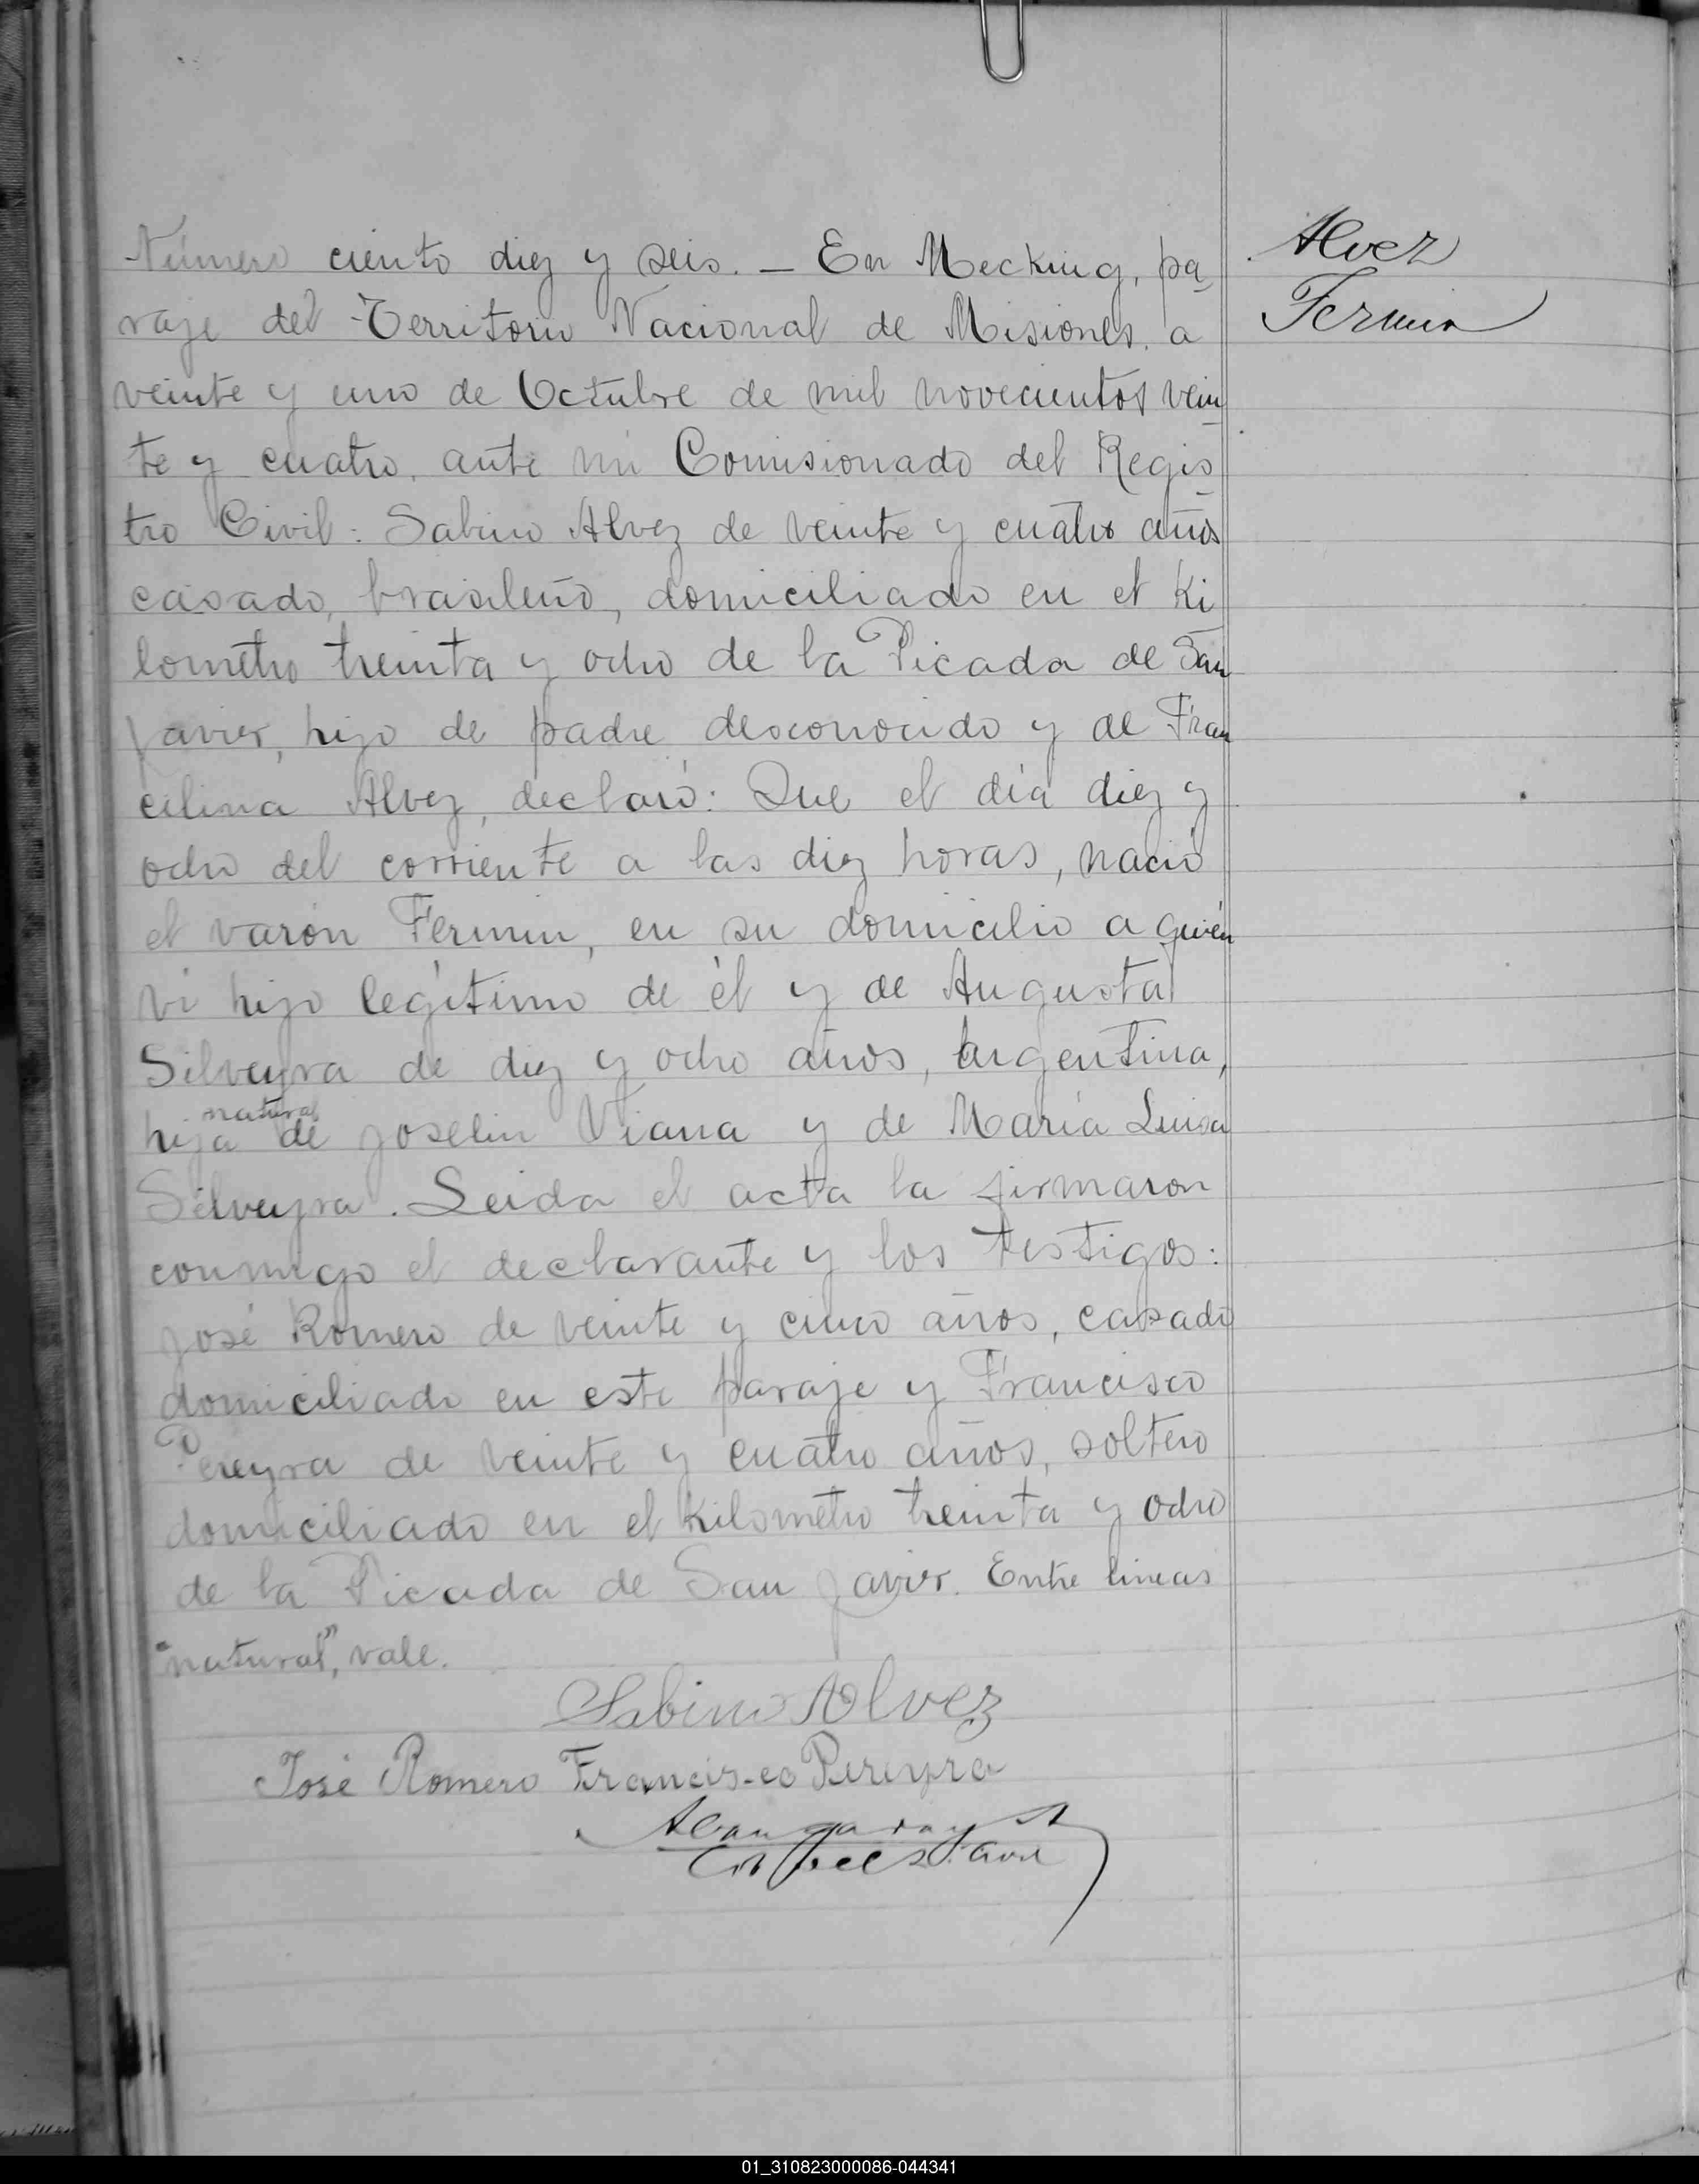 Número ciento diez y seis. — En Mecking, pa-
raje del Territorio Nacional de Misiones, a
veinte y uno de Octubre de mil novecientos vein-
te y cuatro, ante mi Comisionado del Regis-
tro Civil: Sabino Alvez de veinte y cuatro años
casado, brasileño, domiciliado en el Ki
lometro treinta y ocho de la Picada de San
Javier, hijo de padre desconocido y de Fran
cilina Alvez, declaró: Que el día diez y
ocho del corriente a las diez horas, nació
el varón Fermin, en su domicilio a quién
vi hijo legítimo de él y de Augusta
Silveyra de diez y ocho años, argentina,
natural
hija de Joselin Viana y de María Luisa
Silveyra. Leida el acta la firmaron
conmigo el declarante y los testigos:
José Romero de veinte y cinco años, casado
domiciliado en este paraje y Francisco
Pereyra de veinte y cuatro años, soltero
domiciliado en el Kilometro treinta y ocho
de la Picada de San Javier. Entre lineas
"natural", vale.
Sabino Alvez
José Romero Francis-co Pereyra
Alvez
Fermin
01_310823000086-044341